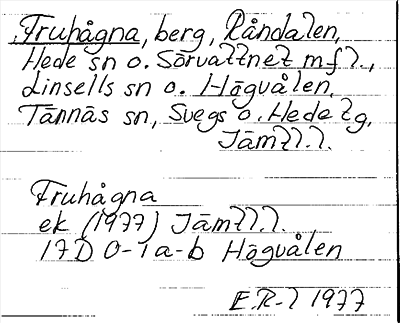 Fruhågna, berg, Råndalen,
Hede sn o. Sörvattnet m fl.,
Linsells sn o. Högvålen,
Tännäs sn, Svegs o. Hede lg,
Jämtl.l.
Fruhågna
ek (1977) Jämtl.l.
17D 0-1a-b Högvålen
E.R-l 1977